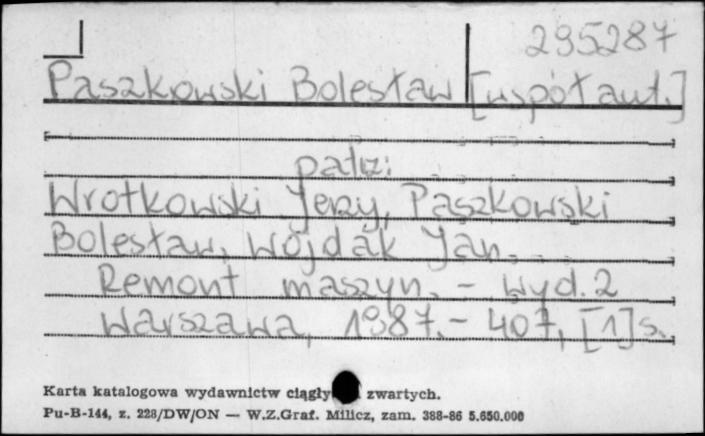 295287
Paszkowski Bolesław [współaut.]
patrz:
Wrotkowski Jerzy, Paszkowski
Bolesław, Wojdak Jan.
Remont maszyn. - Wyd. 2
Warszawa, 1987. - 407, [1] s.
Karta katalogowa wydawnictw ciągły zwartych.
Pu-B-144, z. 228/DW/ON — W.Z.Graf. Milicz, zam. 388-86 5.650.000